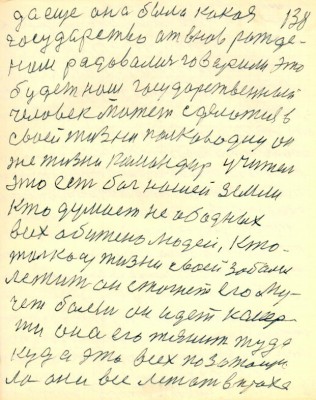 да еще она была какая 138
государство от внов рожде-
ном радовался говорили это
будет нам государственный
человек может сделотся в
своей жизни полководцу он
же жизни командир учител
это гет бог нашей земли
кто думает не ободных
всех обижено людей, кто-
только у жизни своей забали
летит он стонет его му-
чет боли он идет
ти она его тянит туда
куда это всех позатощи
ла они все летат в праха